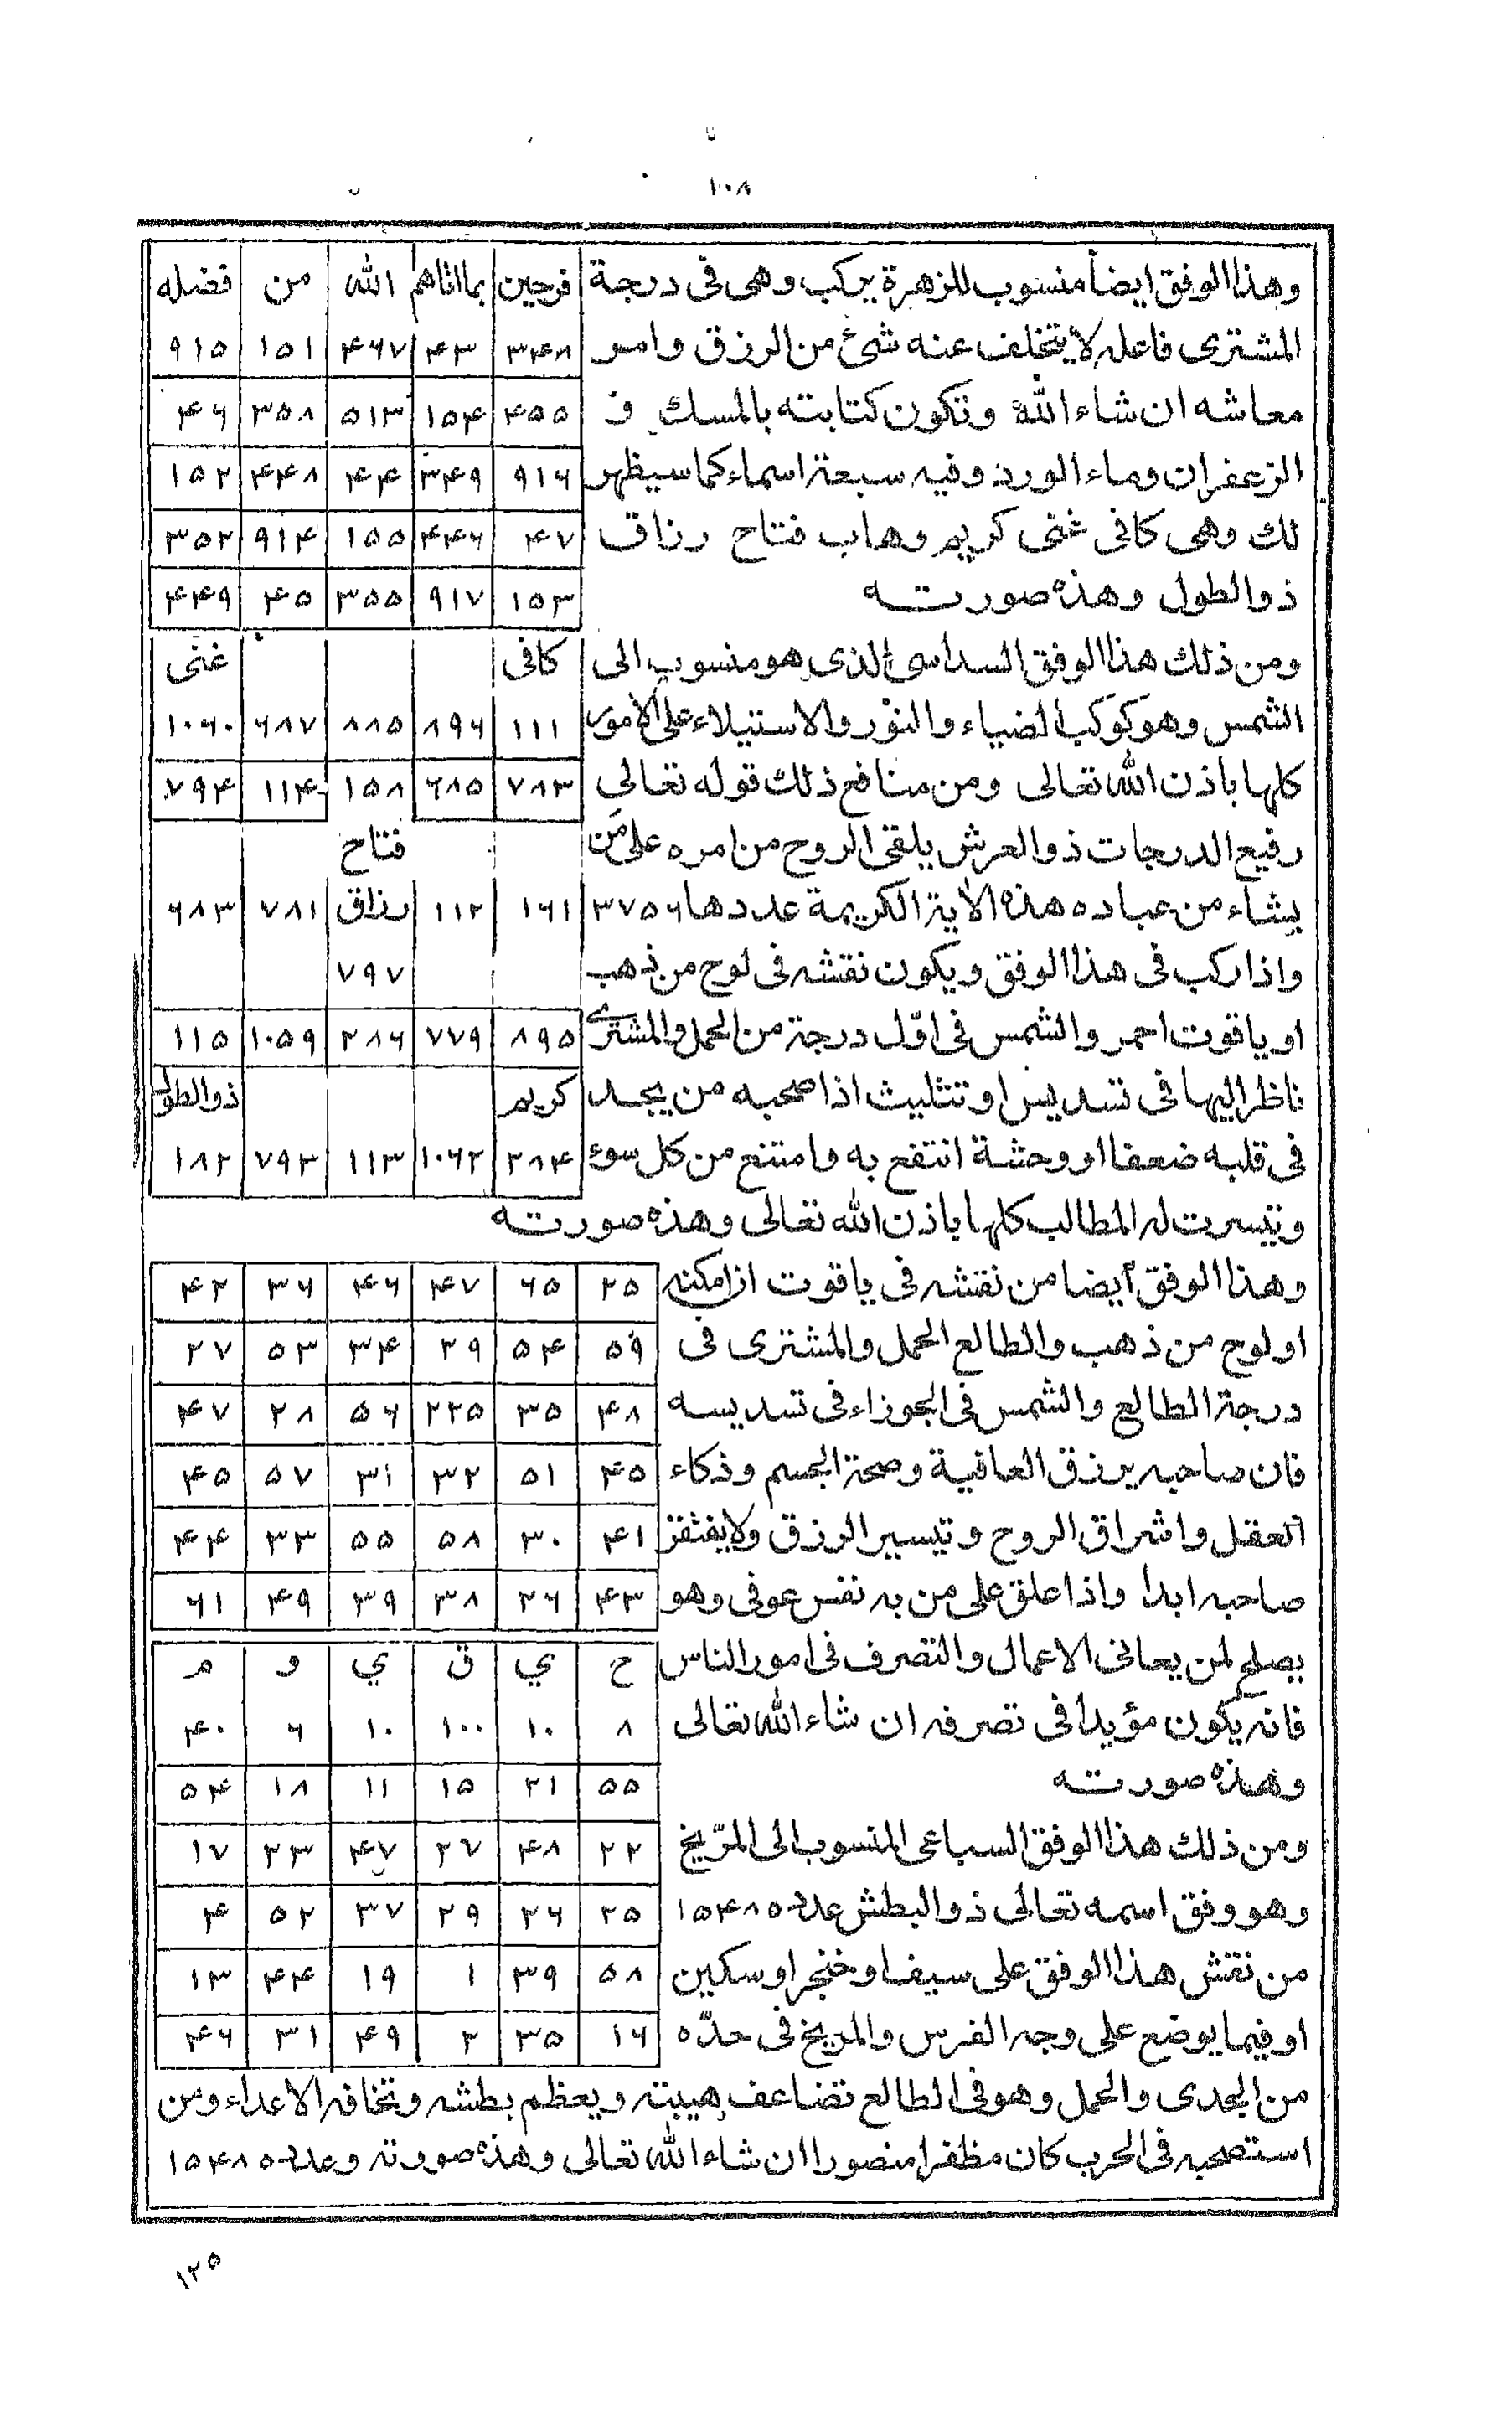 ١٠٨
وهذا الوفق ايضا منسوب للزهرة يركب وهى فى درجة
المشترى فاعله لا يتخلف عنه شئ من الرزق وامر
معاشه ان شاء الله وتكون كتابته بالمسك و
الزعفران وماء الورد وفيه سبعة اسماء كما سيظهر
لك وهى كافى غنى كريم وهاب فتاح رزاق
ذو الطول وهذه صورته
فرحين بما اتاهم الله من فضله
٣۴٨ ۴٣ ۴٦٧ ١٥١ ٩١٥
۴٥٥ ١٥۴ ٥١٣ ٣٥٨ ۴٦
٩١٦ ٣۴٩ ۴۴ ۴۴٨ ١٥٢
۴٧ ۴۴٦ ١٥٥ ٩١۴ ٣٥٢
١٥٣ ٩١٧ ٣٥٥ ۴٥ ۴۴٩
ومن ذلك هذا الوفق السداسى الذى هو منسوب الى
الشمس وهو كوكب الضياء والنور والاستيلاء على الامور
كلها باذن الله تعالى ومن منافع ذلك قوله تعالى
رفيع الدرجات ذو العرش يلقى الروح من امره على من
يشاء من عباده هذه الاية الكريمة عددها ٣٧٥٦
واذا ركب فى هذا الوفق ويكون نقشه فى لوح من ذهب
او ياقوت احمر والشمس فى اوّل درجة من الحمل والمشترى
ناظر اليها فى تسديس او تثليث اذا صحبه من يجد
فى قلبه ضعفا او وحشة انتفع به وامتنع من كل سوء
وتيسرت له المطالب كلها باذن الله تعالى وهذه صورته
كافى غنى
١١١ ٨٩٦ ٨٨٥ ٦٨٧ ١٠٦٠
٧٨٣ ٦٨٥ ١٥٨ ١١۴ ٧٩۴
فتاح
١٦١ ١١٢ رزاق ٧٨١ ٦٨٣
٧٩٧
٨٩٥ ٧٧٩ ٢٨٦ ١٠٥٩ ١١٥
كريم ذو الطول
٢٨۴ ١٠٦٢ ١١٣ ٧٩٣ ١٨٢
وهذا الوفق ايضا من نقشه فى ياقوت ان امكنه
او لوح من ذهب والطالع الحمل والمشترى فى
درجة الطالع والشمس فى الجوزاء فى تسديسه
فان صاحبه يرزق العافية وصحة الجسم وذكاء
العقل واشراق الروح وتيسير الرزق ولا يفتقر
صاحبه ابدا واذا علق على من به نفس عوفى وهو
يصلح لمن يعانى الاعمال والتصرف فى امور الناس
فانه يكون مؤيدا فى تصرفه ان شاء الله تعالى
وهذه صورته
٢٥ ٦٥ ۴٧ ۴٦ ٣٦ ۴٢
٥٩ ٥۴ ٢٩ ٣۴ ٥٣ ٢٧
۴٨ ٣٥ ٢٢٥ ٥٦ ٢٨ ۴٧
۴٥ ٥١ ٣٢ ٣١ ٥٧ ۴٥
۴١ ٣٠ ٥٨ ٥٥ ٣٣ ۴۴
۴٣ ٢٦ ٣٨ ٣٩ ۴٩ ٦١
ح ي ق ي و م
٨ ١٠ ١٠٠ ١٠ ٦ ۴٠
٥٥ ٢١ ١٥ ١١ ١٨ ٥۴
٢٢ ۴٨ ٢٧ ۴٧ ٢٣ ١٧
٢٥ ٢٦ ٢٩ ٣٧ ٥٢ ۴
٥٨ ٣٩ ١ ١٩ ۴۴ ١٣
١٦ ٣٥ ٢ ۴٩ ٣١ ۴٦
ومن ذلك هذا الوفق السباعى المنسوب الى المرّيخ
وهو وفق اسمه تعالى ذو البطش عدد ١٥۴٨٥
من نقش هذا الوفق على سيف او خنجر او سكين
او فيما يوضع على وجه الفرس والمريخ فى حدّه
من الجدى والحمل وهو فى الطالع تضاعف هيبته ويعظم بطشه وتخافه الاعداء ومن
استصحبه فى الحرب كان مظفرا منصورا ان شاء الله تعالى وهذه صورته وعدد ١٥۴٨٥
١٢٥